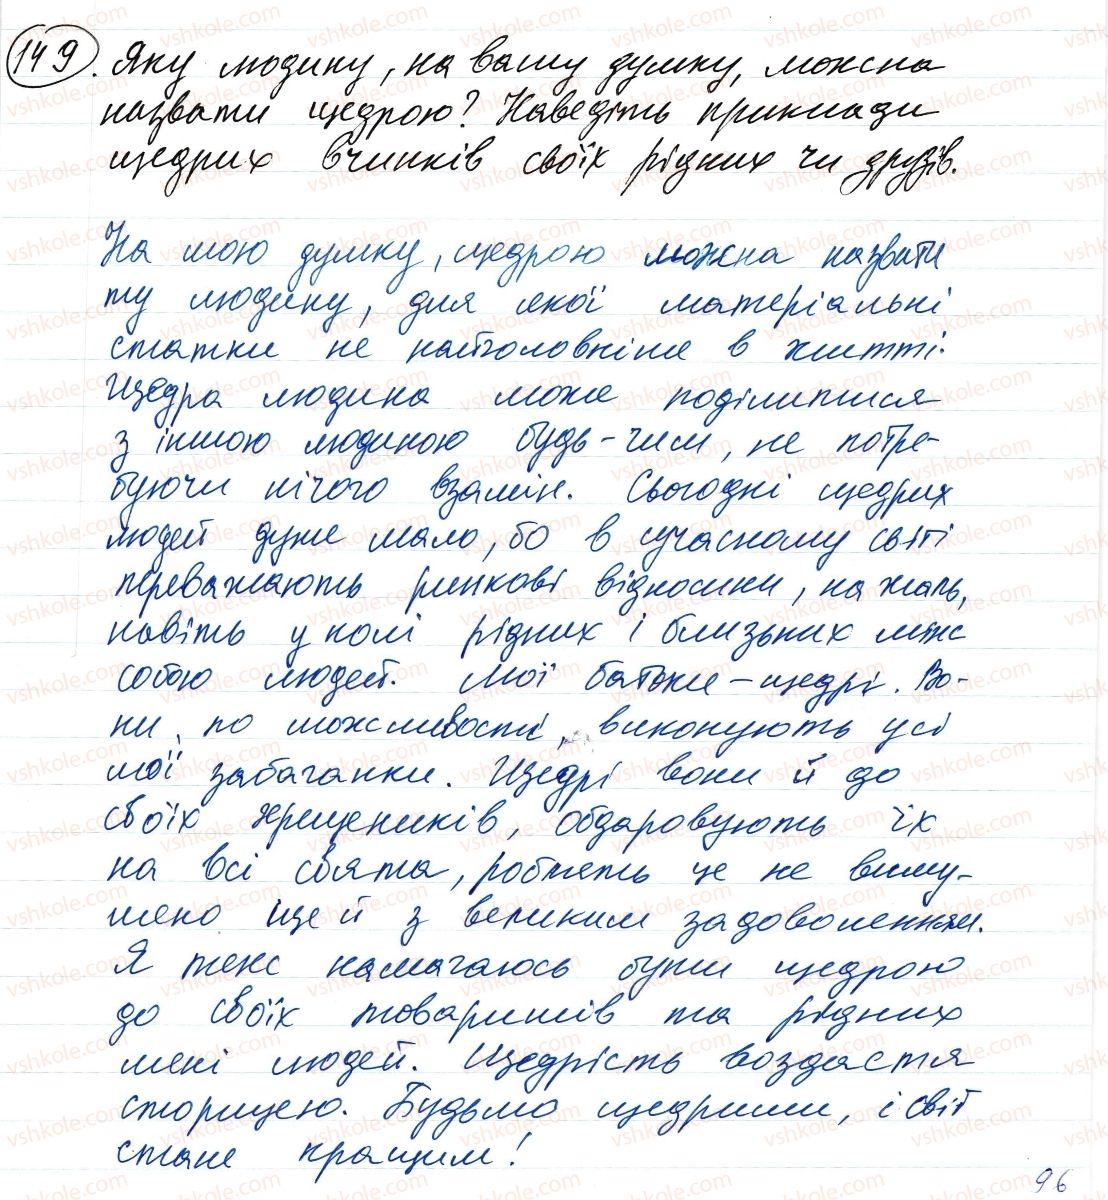 149. Яку людину, на вашу думку, можна
назвати щедрою? Наведіть приклади
щедрих вчинків своїх рідних чи друзів.
На мою думку, щедрою можна назвати
ту людину, для якої матеріальні
статки не найголовніше в житті.
Щедра людина може поділитися
з іншою людиною будь-чим, не потре-
буючи нічого взамін. Сьогодні щедрих
людей дуже мало, бо в сучасному світі
переважають ринкові відносини, на жаль,
навіть у колі рідних і близьких між
собою людей. Мої батьки - щедрі. Во-
ни, по можливості, виконують усі
мої забаганки. Щедрі вони й до
своїх хрещеників, обдаровують їх
на всі свята, роблять це не виму-
шено ще й з великим задоволенням.
Я теж намагаюсь бути щедрою
до своїх товаришів та рідних
мені людей. Щедрість воздастя
сторицею. Будьмо щедрими, і світ
стане кращим!
96